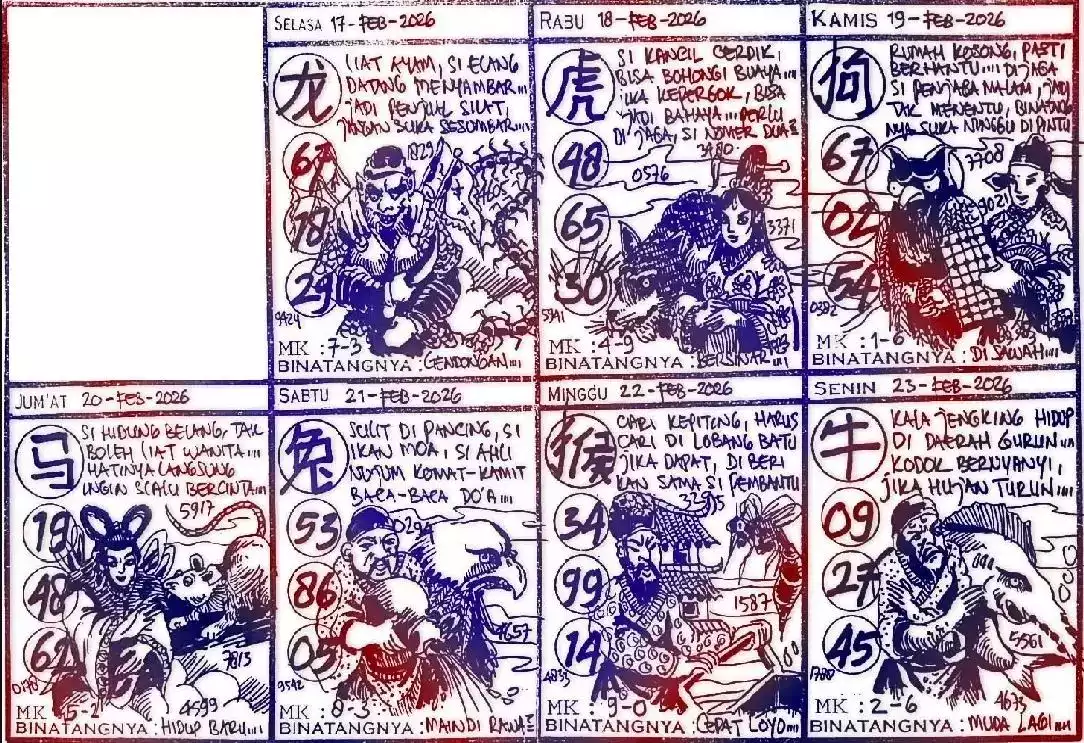 SELASA 17-FEB-2026
龙
LIAT AYAM, SI ELANG
DATANG MENYAMBAR....
JADI PENJUAL SILAT,
JANGAN SUKA SESOMBAR....
67
1829
78
29
9424
MK : 7-3
BINATANGNYA : GENDONGAN....
RABU 18-FEB-2026
虎
SI KANCIL CERDIK,
BISA BOHONGI BUAYA....
JIKA KEPERGOK, BISA
JADI BAHAYA... PERLU
DI JAGA, SI NOMER DUA
48
3480
0576
65
3371
30
5941
MK : 4-9
BINATANGNYA : BERSINAR....
KAMIS 19-FEB-2026
狗
RUMAH KOSONG, PASTI
BERHANTU.... DI JAGA
SI PENJAGA MALAM, JADI
TAK MENENTU, BINATANG
NYA SUKA NUNGGU DI PINTU
67
3708
02
4021
54
MK : 1-6
BINATANGNYA : DI SAWAH....
JUM'AT 20-FEB-2026
马
SI HIDUNG BELANG, TAK
BOLEH LIAT WANITA....
HATINYA LANGSUNG
INGIN SLALU BERCINTA....
5917
19
48
62
7813
4599
MK : 5-2
BINATANGNYA : HIDUP BARU....
SABTU 21-FEB-2026
兔
SULIT DI PANCING, SI
IKAN MOA, SI AHLI
NUJUM KOMAT-KAMIT
BACA-BACA DO'A....
53
0294
86
4657
05
9542
MK : 8-3
BINATANGNYA : MAIN DI RAWA
MINGGU 22-FEB-2026
猴
CARI KEPITING, HARUS
CARI DI LOBANG BATU
JIKA DAPAT, DI BERI
KAN SAMA SI PEMBANTU
34
99
1587
14
4833
MK : 9-0
BINATANGNYA : CEPAT LOYO....
SENIN 23-FEB-2026
牛
KALA JENGKING HIDUP
DI DAERAH GURUN....
KODOK BERNYANYI,
JIKA HUJAN TURUN....
09
27
5361
45
4673
MK : 2-6
BINATANGNYA : MUDA LAGI....